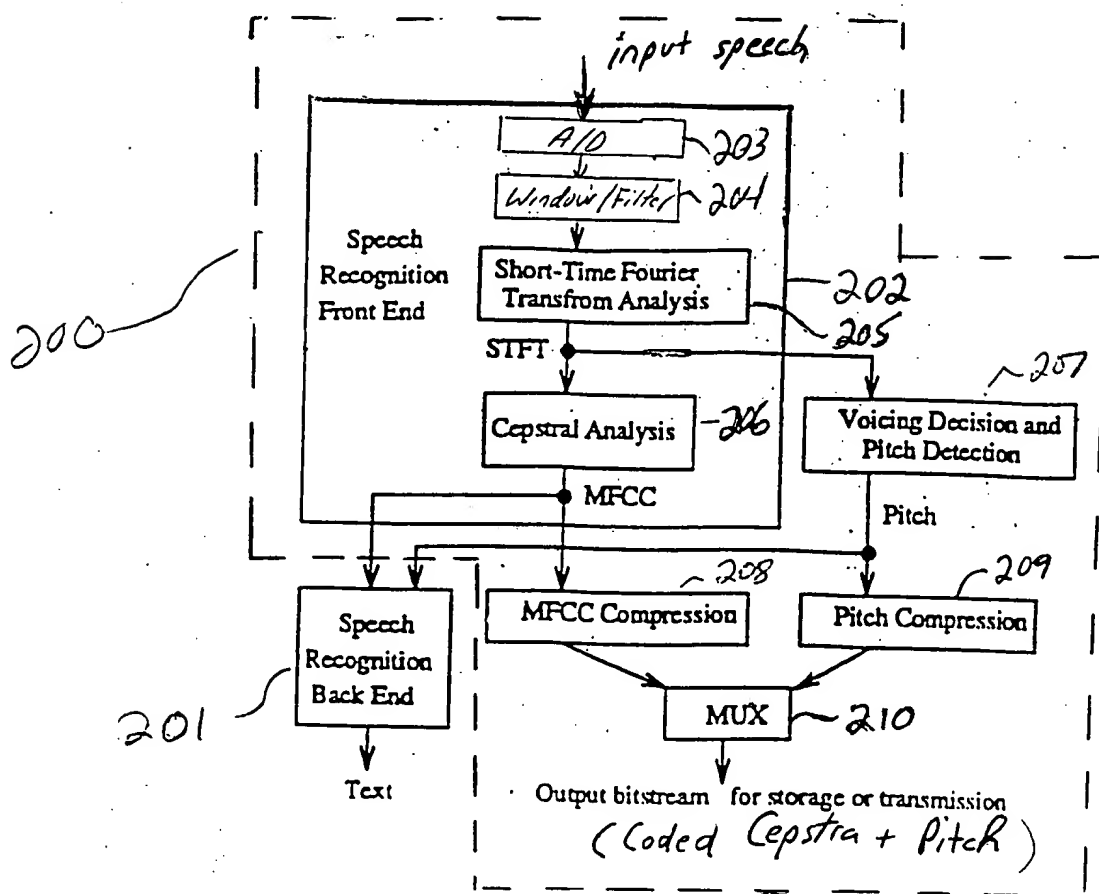 input speech
A/D
203
Window/Filter
204
Speech
Recognition
Front End
Short-Time Fourier
Transfrom Analysis
202
205
200
STFT
207
Cepstral Analysis
206
Voicing Decision and
Pitch Detection
MFCC
Pitch
208
209
MFCC Compression
Pitch Compression
Speech
Recognition
Back End
201
MUX
210
Text
Output bitstream for storage or transmission
(Coded Cepstra + Pitch)